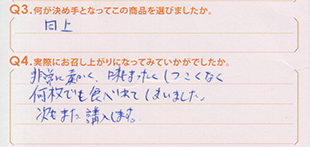 Q3.何が決め手となってこの商品を選びましたか。
同上
Q4.実際にお召し上がりになってみていかがでしたか。
非常に柔かく、味もまったくしつこくなく
何枚でも食べれてしまいました。
次もまた購入します。